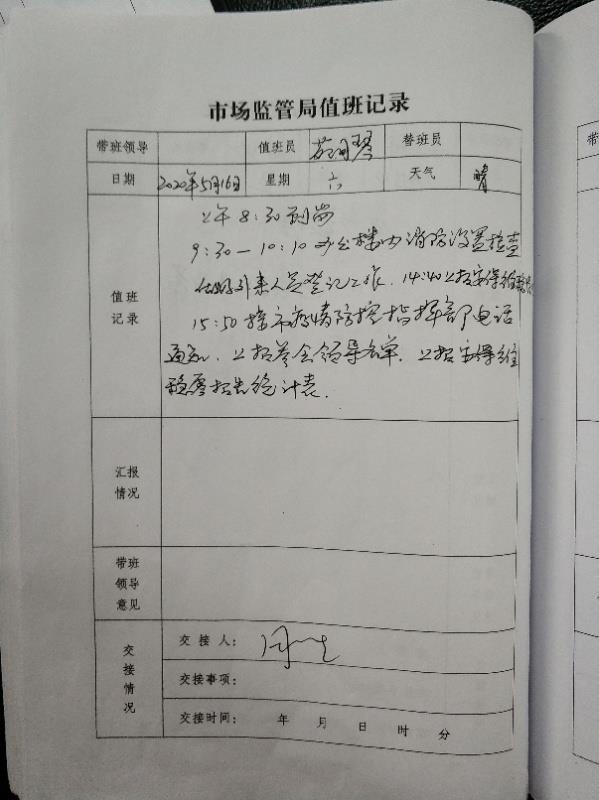 市场监管局值班记录
带班领导 值班员 替班员
日期 2020年5月16日 星期 六 天气 晴
上午8:30到岗
9:30—10:10办公楼内消防设置检查
值班记录
做好外来人员登记工作. 14:40上报安保维稳
15:50接市疫情防控指挥部电话
通知. 上报参会领导名单. 上报安保维
稳零报告统计表.
汇报情况
带班领导意见
交接情况
交接人:
交接事项:
交接时间: 年 月 日 时 分